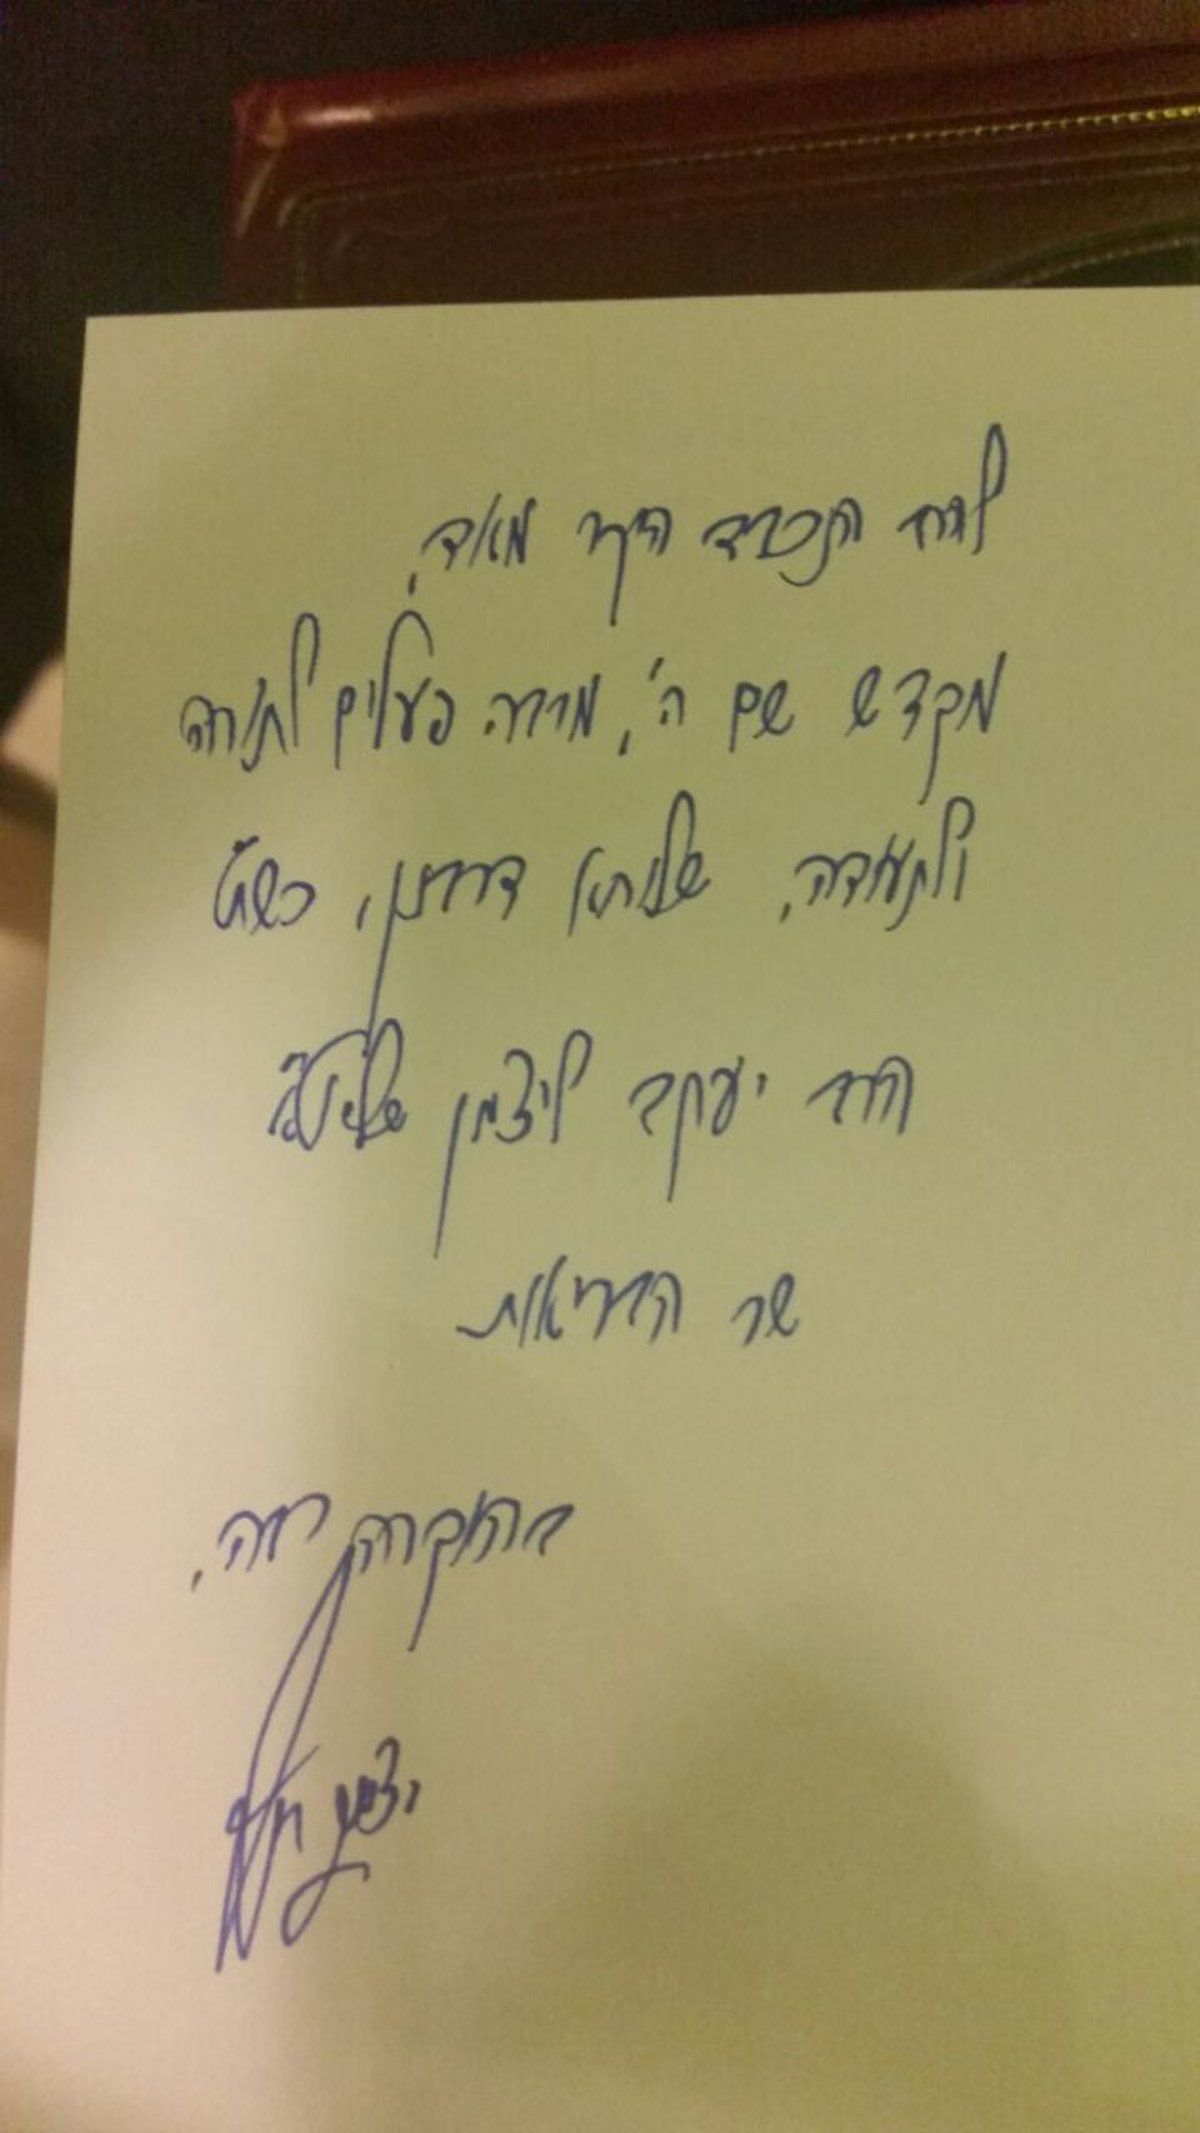 לרב הנכבד היקר מאד,
מקדש שם ה', מרבה פעלים לתורה
ולתעודה, שלוחא דרבנן, כש"ת
הרב יעקב ליצמן שליט"א
שר הבריאות
בהוקרה רבה,
יצחק